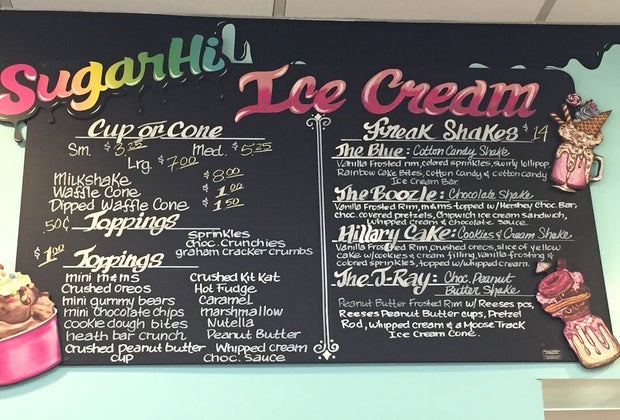 SugarHil
Ice Cream
Cup or Cone
Sm. $3.25 Med. $5.25
Lrg. $7.00
Milkshake $8.00
Waffle Cone $1.00
Dipped Waffle Cone $1.50
50¢ Toppings
sprinkles
choc. crunchies
graham cracker crumbs
$1.00 Toppings
mini m&ms
crushed oreos
mini gummy bears
mini chocolate chips
cookie dough bites
heath bar crunch
crushed peanut butter
cup
crushed Kit Kat
Hot Fudge
Caramel
marshmallow
Nutella
Peanut Butter
Whipped cream
Choc. Sauce
Freak Shakes $14
The Blue: Cotton Candy Shake
Vanilla Frosted rim, colored sprinkles, swirly lollipop
Rainbow Cake Bites, cotton candy & cotton candy
Ice Cream Bar
The Boozle: Chocolate Shake
Vanilla Frosted Rim, m&ms topped w/Hershey Choc. Bar,
choc. covered pretzels, Chipwich ice cream sandwich,
whipped cream & chocolate sauce.
Hillary Cake: Cookies & Cream Shake
Vanilla Frosted Rim, crushed oreos, slice of yellow
cake w/cookies & cream filling, vanilla frosting &
colored sprinkles, topped w/whipped cream.
The J-Ray: Choc. Peanut
Butter Shake
Peanut Butter Frosted Rim w/ Reeses pcs,
Reeses Peanut Butter cups, Pretzel
Rod, whipped cream & a Moose Track
Ice Cream Cone.